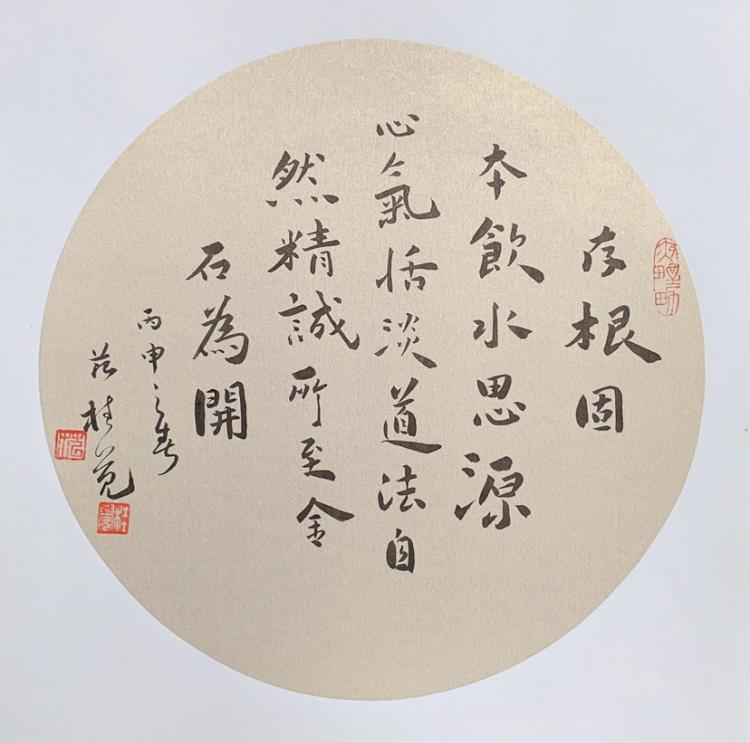 存根固
本飲水思源
心氣恬淡道法自
然精誠所至金
石為開
丙申之春
桂